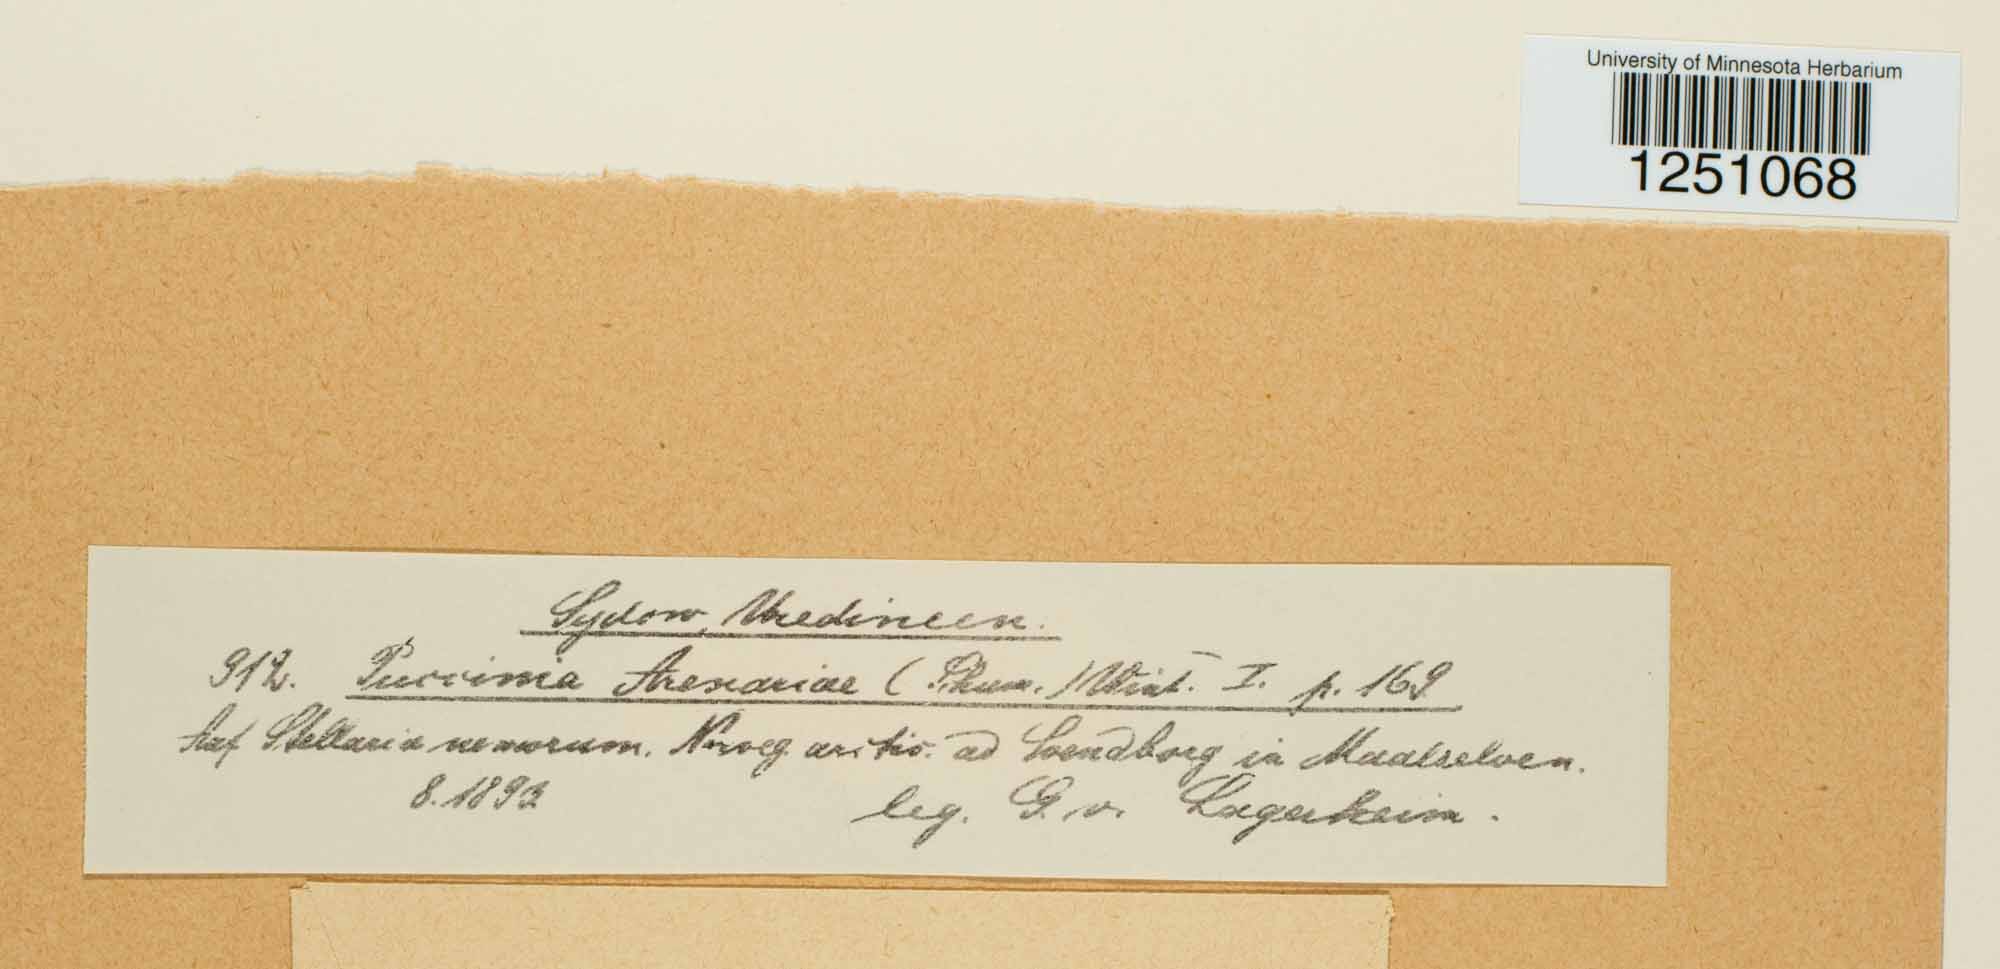 University of Minnesota Herbarium
1251068
Sydow, Uredineen.
912. Puccinia Arenariae (Schum.) Wint. I. p. 169
Auf Stellaria nemorum. Norveg. arctic. ad in Maalselven.
8. 1893
leg. G. v. Lagerheim.